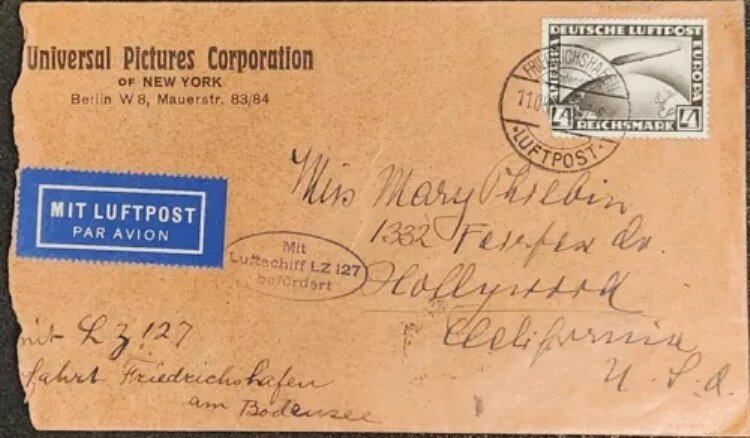 Universal Pictures Corporation
OF NEW YORK
Berlin W 8, Mauerstr. 83/84
DEUTSCHE LUFTPOST
EUROPA
4 4
REICHSMARK
FRIEDRICHSHAFEN
11.
LUFTPOST
MIT LUFTPOST
PAR AVION
Mit
Luftschiff LZ 127
befördert
Miss Mary Philbin
1332 Fairfax Av.
Hollywood
California
U. S. a.
mit LZ 127
fahrt Friedrichshafen
am Bodensee